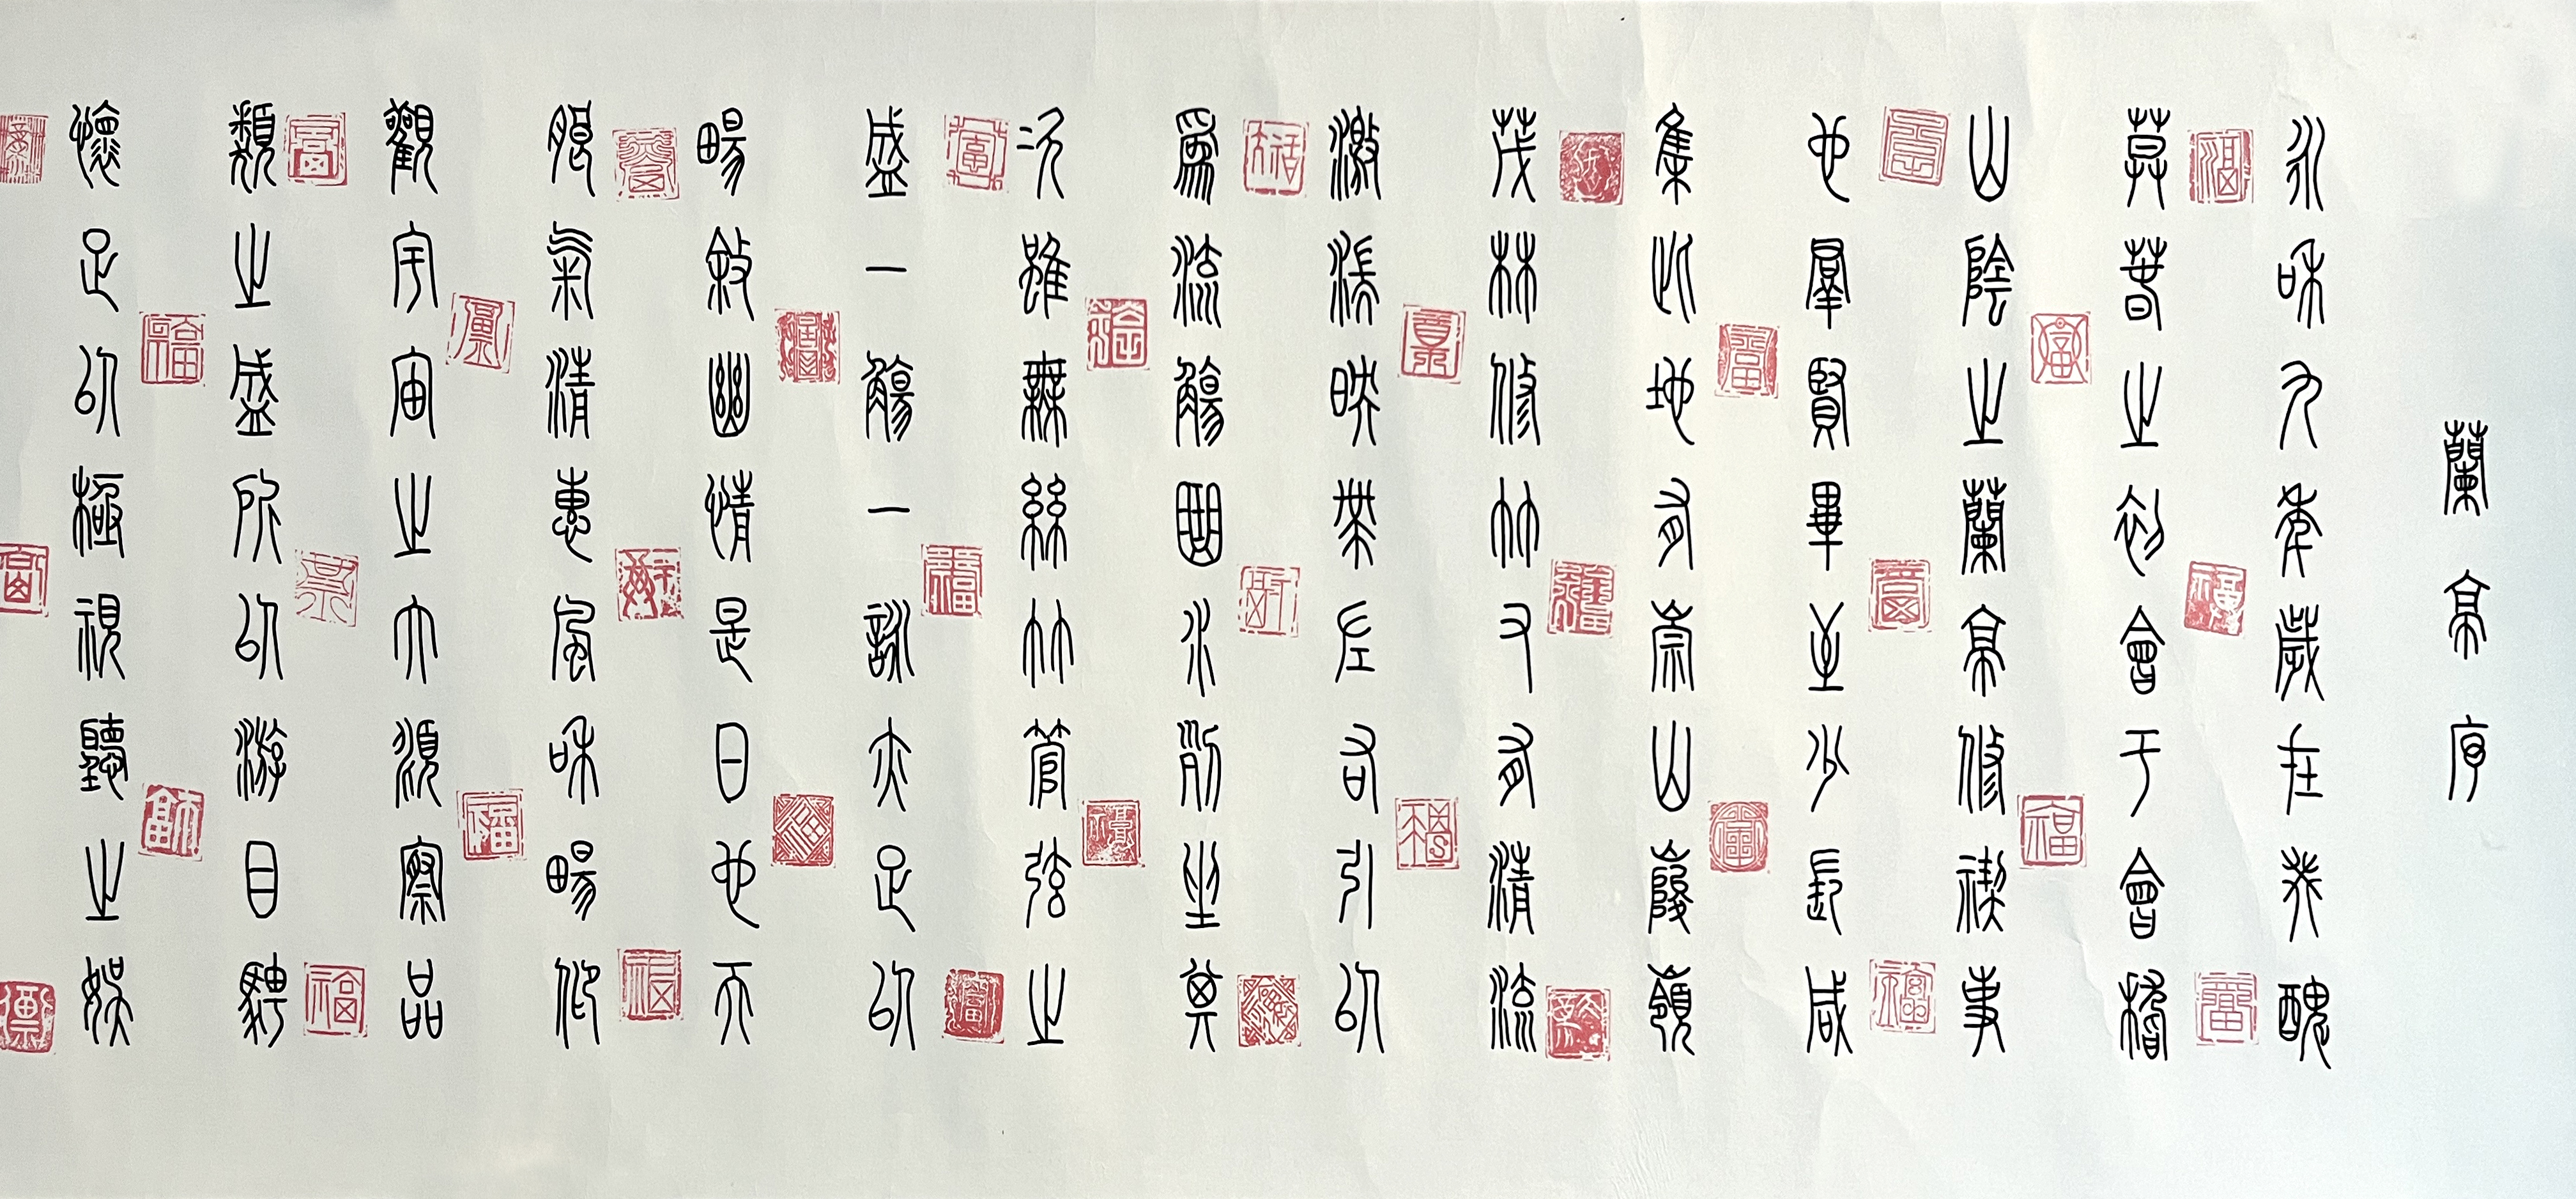 蘭亭序
永和九年歲在癸醜
莫春之初會于會稽
山陰之蘭亭修禊事
也羣賢畢至少長咸
集此地有崇山峻嶺
茂林修竹又有清流
激湍映帶左右引以
爲流觴曲水列坐其
次雖無絲竹管弦之
盛一觴一詠亦足以
暢敘幽情是日也天
朗氣清惠風和暢仰
觀宇宙之大俯察品
類之盛所以游目騁
懷足以極視聽之娛